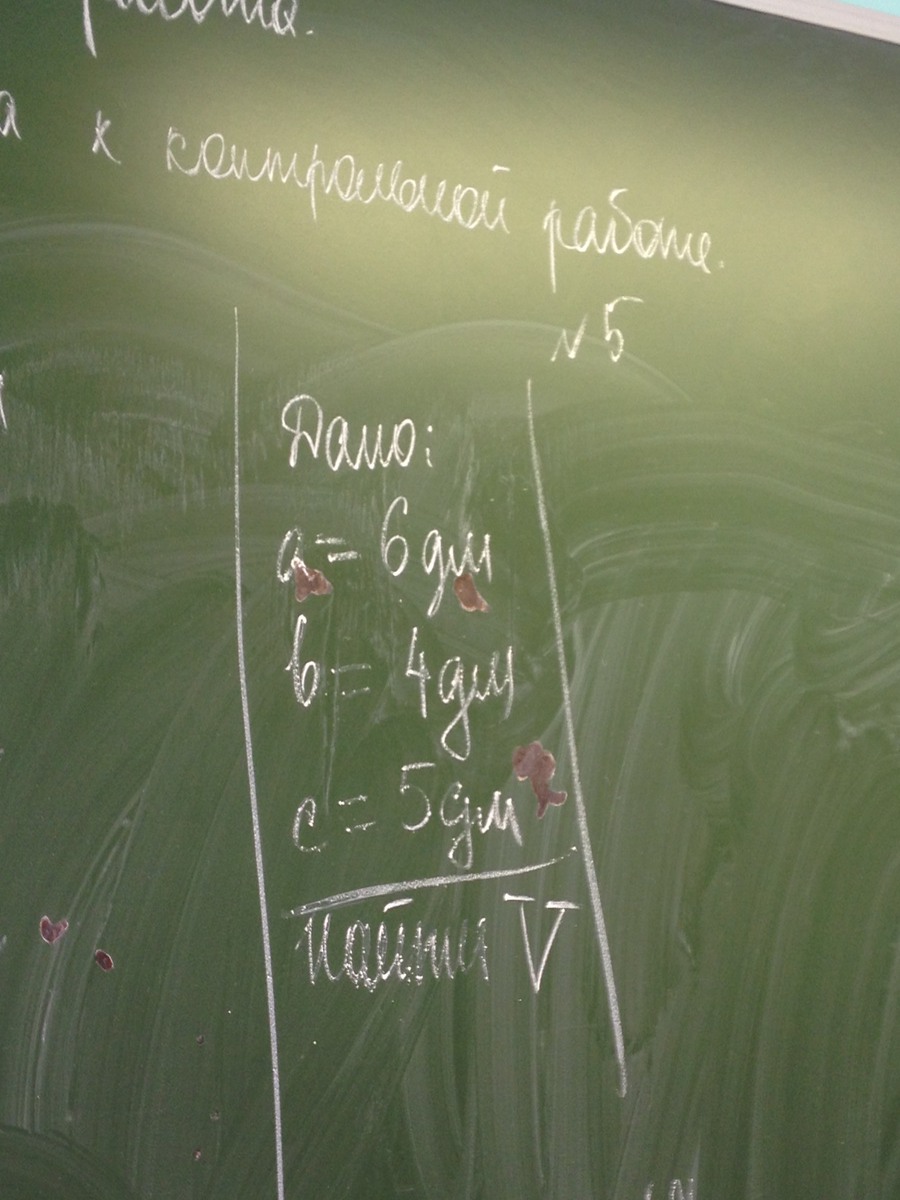 работа.
а к контрольной работе.
№5
Дано:
a = 6 дм
b = 4 дм
c = 5 дм
Найти V